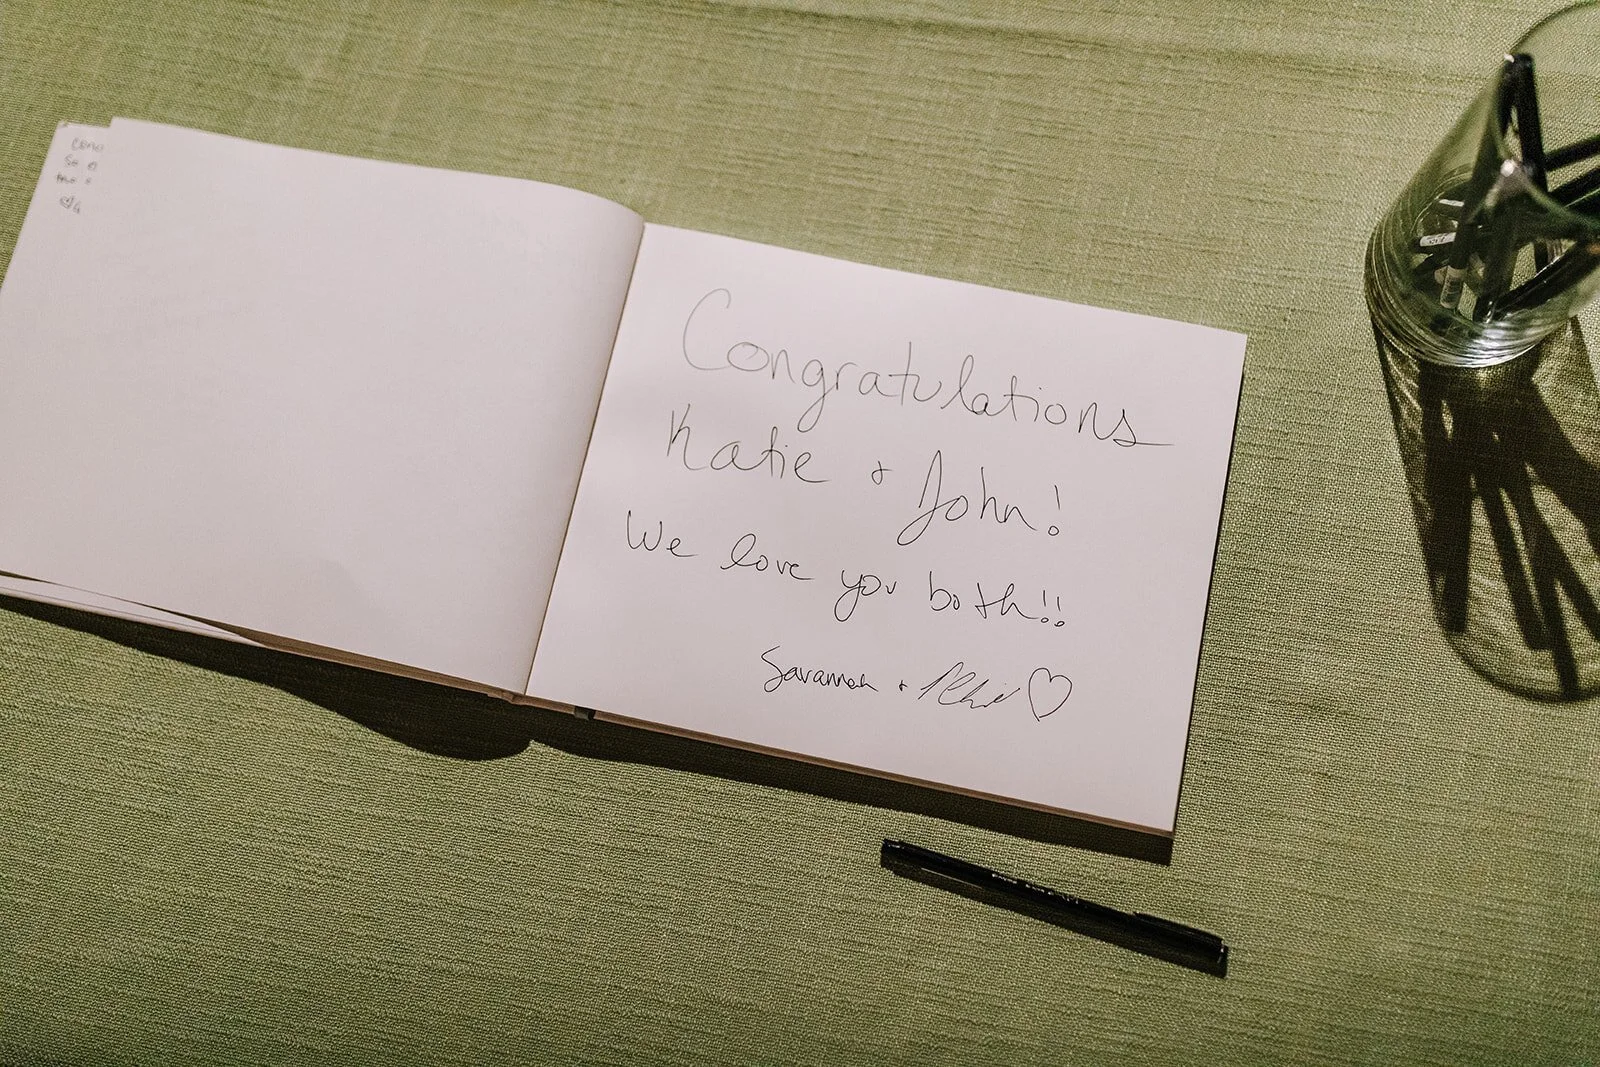 Congratulations
Katie & John!
We love you both!!
Savannah +